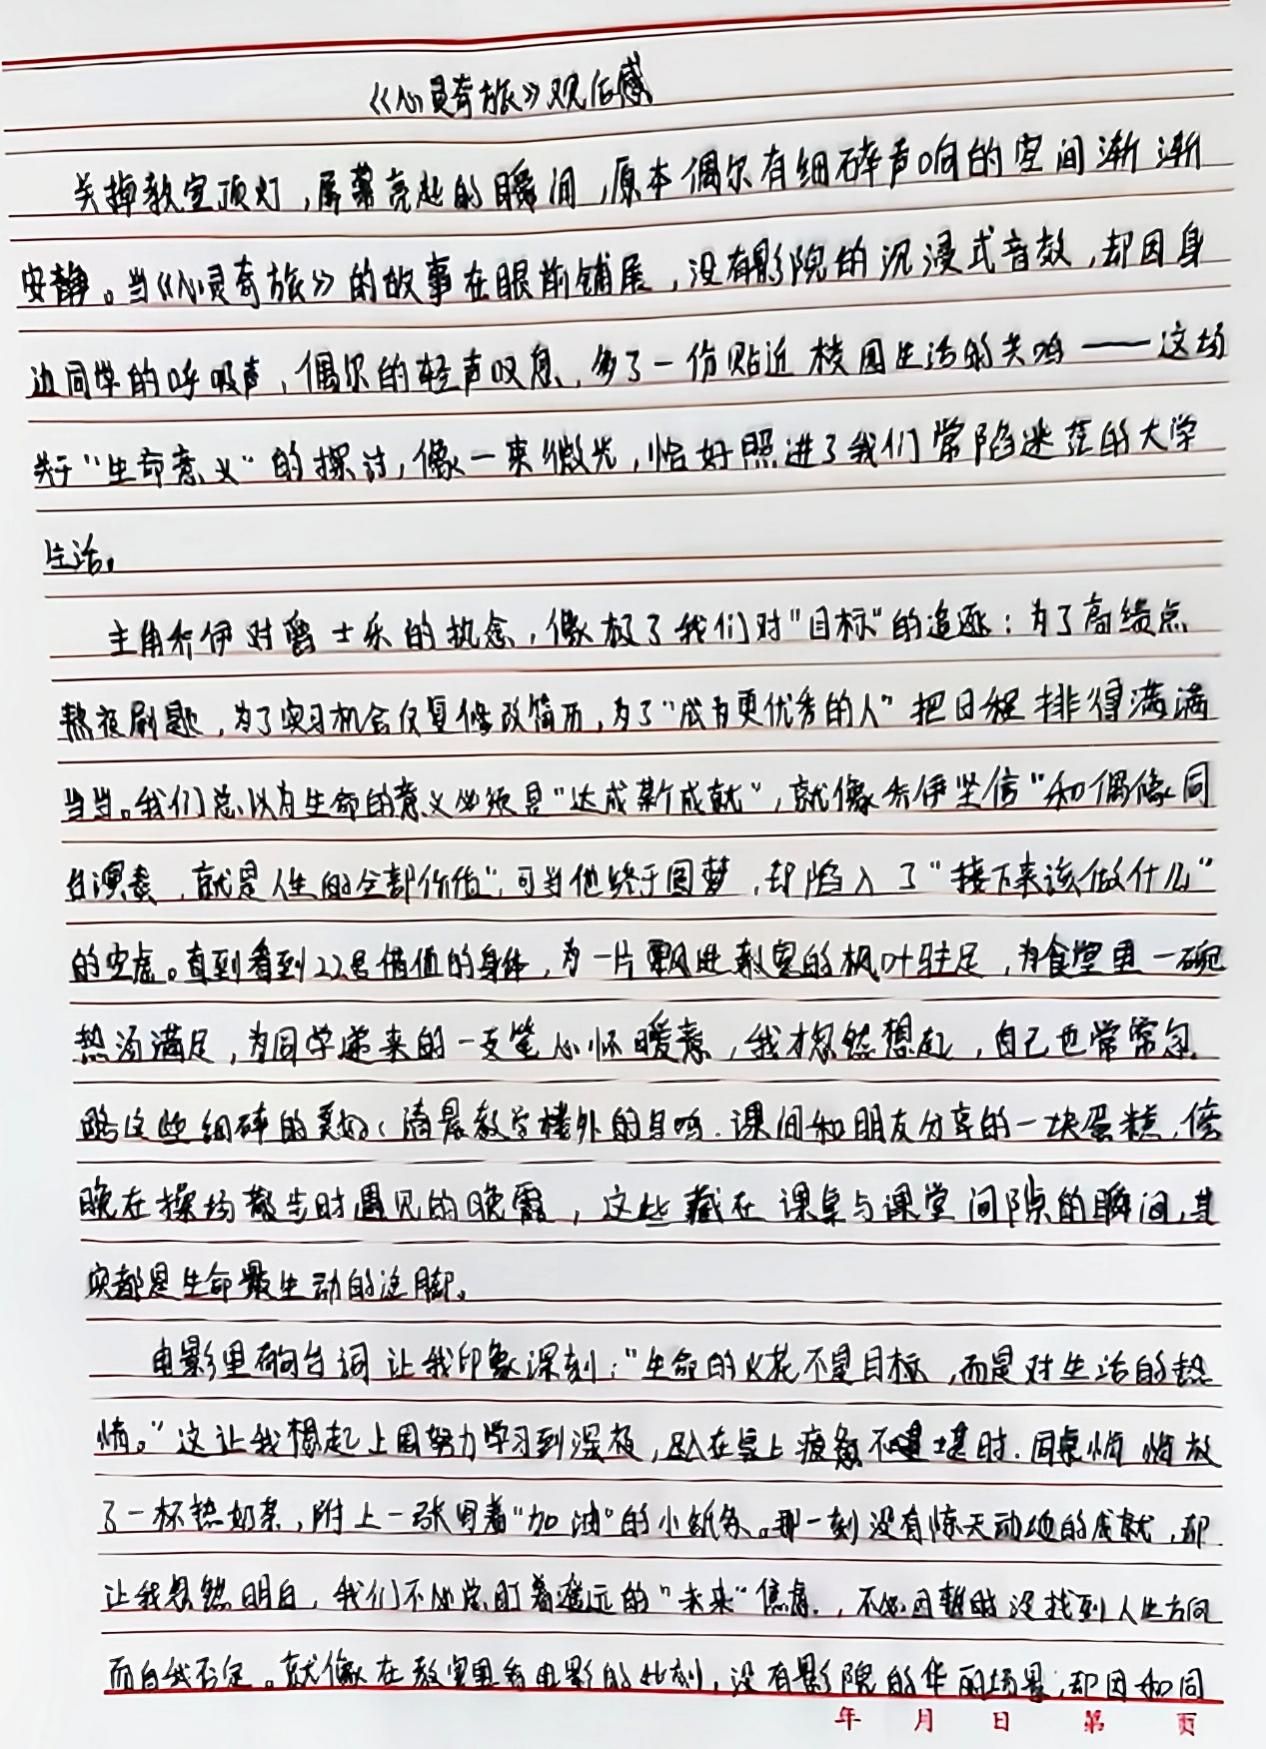 《心灵奇旅》观后感
关掉教室顶灯，屏幕亮起的瞬间，原本偶尔有细碎声响的空间渐渐
安静。当《心灵奇旅》的故事在眼前铺展，没有影院的沉浸式音效，却因身
边同学的呼吸声，偶尔的轻声叹息，多了一份贴近校园生活的共鸣——这场
关于"生命意义"的探讨，像一束微光，恰好照进了我们常陷迷茫的大学
生活。
主角乔伊对爵士乐的执念，像极了我们对"目标"的追逐：为了高绩点
熬夜刷题，为了实习机会反复修改简历，为了"成为更优秀的人"把日程排得满满
当当。我们总以为生命的意义必须是"达成某个成就"，就像乔伊坚信"和偶像同
台演奏，就是人生的全部价值"，可当他终于圆梦，却陷入了"接下来该做什么"
的空虚。直到看到22号借他的身体，为一片飘进教室的枫叶驻足，为食堂里一碗
热汤满足，为同学递来的一支笔心怀暖意，我才忽然想起，自己也常常忽
略这些细碎的美好：清晨教学楼外的鸟鸣，课间和朋友分享的一块蛋糕，傍
晚在操场散步时遇见的晚霞，这些藏在课桌与课堂间隙的瞬间，其
实都是生命最生动的注脚。
电影里的句台词让我印象深刻："生命的火花不是目标，而是对生活的热
情。"这让我想起上周努力学习到深夜，趴在桌上疲惫不堪时，同桌悄悄放
了一杯热奶茶，附上一张写着"加油"的小纸条。那一刻没有惊天动地的成就，却
让我忽然明白，我们不必总盯着遥远的"未来"焦虑，不必因暂时没找到人生方向
而自我否定。就像在教室里看电影的此刻，没有影院的华丽场景，却因和同
年 月 日 第 页